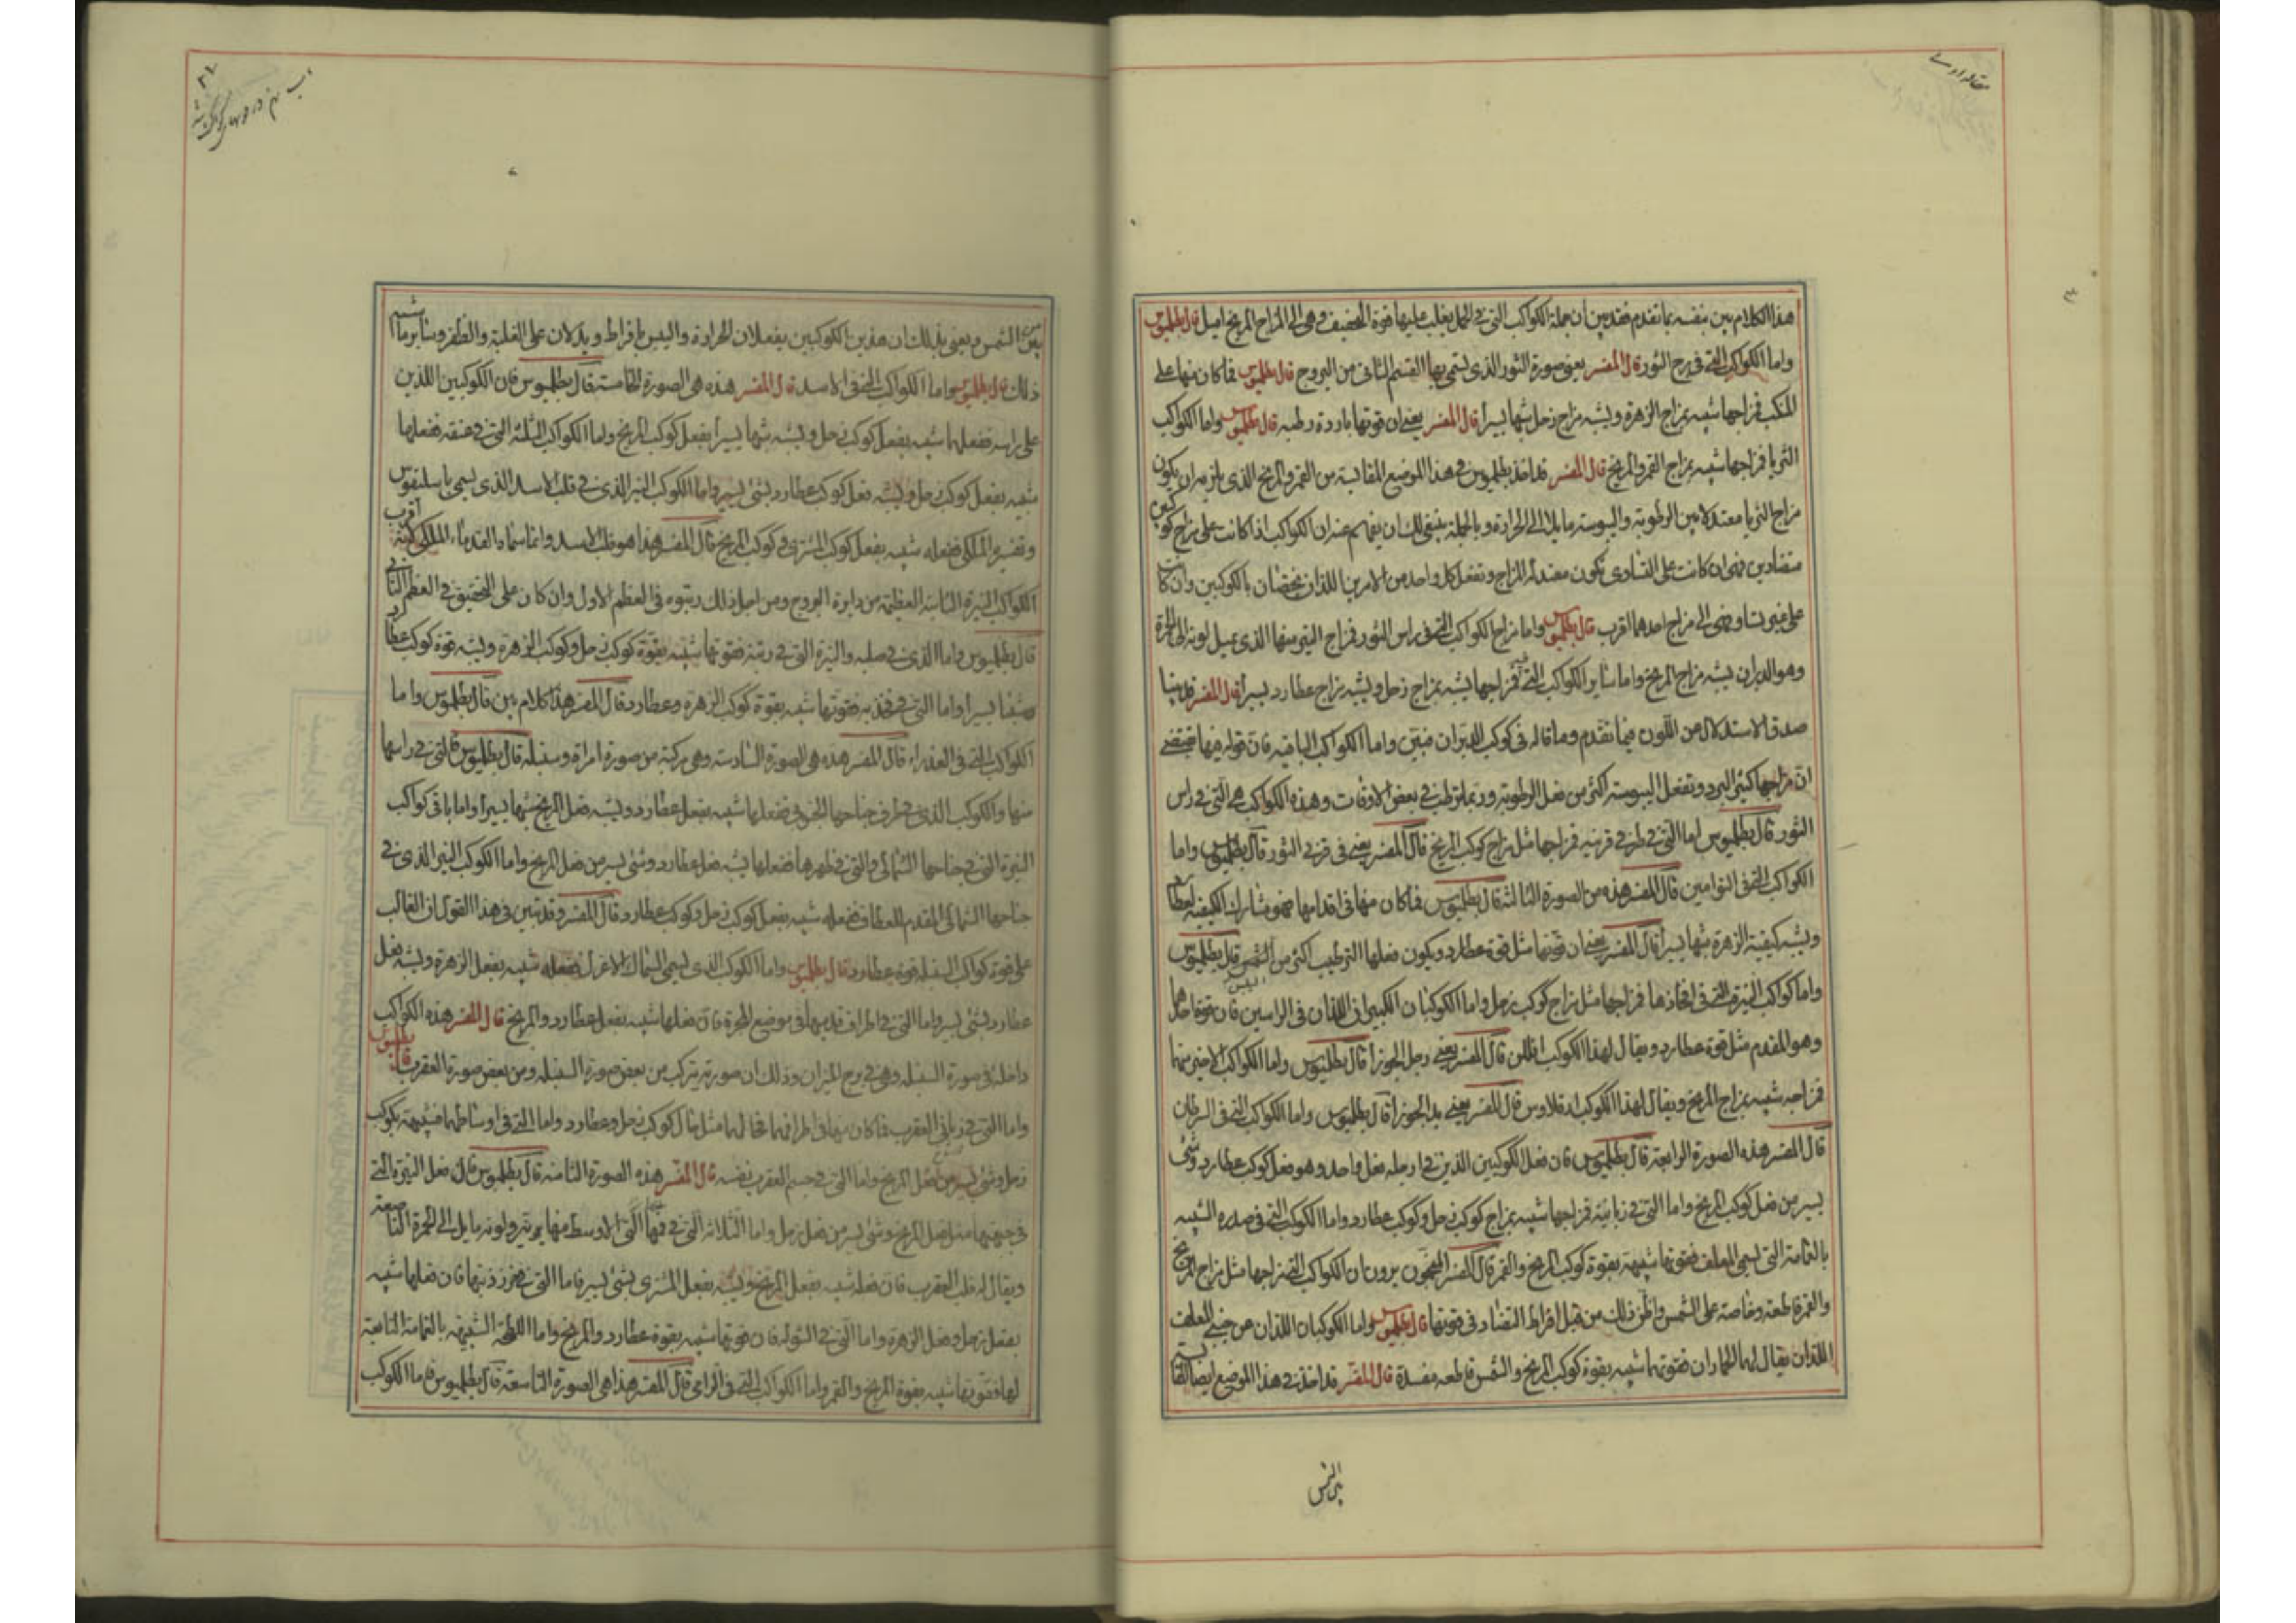 مقاله اولے
هذا الكلام بين بنفسه بما تقدم فقد بين ان جملة الكواكب التى فى الحمل يغلب عليها قوة التجفيف وهى الى المزاج المريخ اميل قال بطلميوس
واما الكواكب التى فى برج الثور قال المفسر يعنى صورة الثور الذى يسمى بها القسم الثانى من البروج قال بطلميوس فما كان منها على
المنكب فمزاجها شبيه بمزاج الزهرة ويشبه مزاج زحل شبها يسيرا قال المفسر يعنى ان قوتها باردة رطبه قال بطلميوس واما الكواكب
الثريا فمزاجها شبيه بمزاج القمر والمريخ قال المفسر قد اخذ بطلميوس فى هذا الموضع المقايسة من القمر والمريخ الذى يلزمه ان يكون
مزاج الثريا معتدلا بين الرطوبة واليبوسة مايلا الى الحرارة وبالجملة ينبغى لك ان يفهم عنه ان الكواكب اذا كانت على مزاج كوكبين
متضادين فهى ان كانت على التساوى تكون معتدلة المزاج وتفعل كل واحد من الامرين اللذان يخصان بالكوكبين وان كانت
على غير تساو فهى الى مزاج احدهما اقرب قال بطلميوس واما مزاج الكواكب التى فى راس الثور فمزاج النير منها الذى يميل لونه الى الحمرة
وهو الدبران يشبه مزاج المريخ واما ساير الكواكب التى فيه فمزاجها يشبه بمزاج زحل ويشبه مزاج عطارد يسيرا قال المفسر قد بينا
صدق الاستدلال من اللون فيما تقدم وما قاله فى كوكب الدبران مبين واما الكواكب الباقيه فان قوله فيها يقتضى
ان مزاجها كثير البرد وتفعل اليبوسة اكثر من فعل الرطوبة وربما ترطب فى بعض الاوقات وهذه الكواكب هى التى فى راس
الثور قال بطلميوس اما التى فى طرفى قرنيه فمزاجها مثل مزاج كوكب المريخ قال المفسر يعنى فى قرنى الثور قال بطلميوس واما
الكواكب التى فى التوامين قال المفسر هذه من الصورة الثالثة قال بطلميوس فما كان منها فى اقدامها فهو مشارك الكيفيه لعطارد
ويشبه كيفية الزهرة شبها يسيرا قال المفسر يعنى ان قوتها مثل قوة عطارد ويكون فعلها الترطيب اكثر من اليبس قال بطلميوس
واما كواكب النيرة التى فى افخاذها فمزاجها مثل مزاج كوكب زحل واما الكوكبان الكبيران اللذان فى الراسين فان قوة احدهما
وهو المقدم مثل قوة عطارد ويقال لهذا الكوكب افللن قال المفسر يعنى رجل الجوزا قال بطلميوس واما الكواكب الاخير منها
فمزاجه شبيه بمزاج المريخ ويقال لهذا الكوكب ارقلاوس قال المفسر يعنى يد الجوزا قال بطلميوس واما الكواكب التى فى السرطان
قال المفسر هذه الصورة الرابعة قال بطلميوس فان فعل الكوكبين الذين فى ارجله فعل واحد وهو فعل كوكب عطارد وشى
يسير من فعل كوكب المريخ واما التى فى زبانيه فمزاجها شبيه بمزاج كوكب زحل وكوكب عطارد واما الكوكب التى فى صدره الشبيه
بالغمامة التى تسمى المعلف فقوتها شبيهة بقوة كوكب المريخ والقمر قال المفسر المنجمون يرون ان الكواكب التى مزاجها مثل مزاج المريخ
والقمر قاطعة وخاصة على الشمس واظن ذلك من قبل افراط التضاد فى قوتها قال بطلميوس واما الكوكبان اللذان عن جنبى المعلف
اللذان يقال لهما الحماران فقوتهما شبيه بقوة كوكب المريخ والشمس قاطعه مفسدة قال المفسر قد اخذ فى هذا الموضع ايضا المقايسة
بين الشمس
٢٧
بين الشمس ويعنى بذلك ان هذين الكوكبين يفعلان الحرارة واليبس بافراط ويدلان على الغلبة والظفر وساير ما اشبه
ذلك قال بطلميوس واما الكواكب التى فى الاسد قال المفسر هذه هى الصورة الخامسة قال بطلميوس فان الكوكبين اللذين
على راسه ففعلهما شبيه بفعل كوكب زحل ويشبه شبها يسيرا بفعل كوكب المريخ واما الكواكب الثلثة التى فى عنقه ففعلها
شبيه بفعل كوكب زحل ويشبه فعل كوكب عطارد بشئ يسير واما الكوكب النير الذى فى قلب الاسد الذى يسمى باسليقوس
وتفسيره الملكى ففعله شبيه بفعل كوكب المشترى وكوكب المريخ قال المفسر هذا هو قلب الاسد وانما سماه القدماء الملكى لانه اقرب
الكواكب النيرة الثابتة العظيمة من دايرة البروج ومن اجل ذلك رتبوه فى العظم الاول وان كان على التحقيق فى العظم الثانى
قال بطلميوس واما الذى فى صلبه والنيرة التى فى ذنبه فقوتها شبيه بقوة كوكب زحل وكوكب الزهرة ويشبه قوة كوكب عطارد
شبها يسيرا واما التى فى فخذيه فقوتها شبيه بقوة كوكب الزهرة وعطارد قال المفسر هذا كلام بين قال بطلميوس واما
الكواكب التى فى العذراء قال المفسر هذه هى الصورة السادسة وهى مركبة من صورة امراة وسنبلة قال بطلميوس فالتى فى راسها
منها والكوكب الذى فى طرف جناحها الجنوبى ففعلها شبيه بفعل عطارد ويشبه فعل المريخ شبها يسيرا واما باقى كواكب
النيرة التى فى جناحها الشمالى والتى فى ظهرها ففعلها يشبه فعل عطارد وشئ يسير من فعل المريخ واما الكوكب النير الذى فى
جناحها الشمالى المقدم للقطاف ففعله شبيه بفعل كوكب زحل وكوكب عطارد قال المفسر وقد تبين فى هذا القول ان الغالب
على قوة كواكب السنبله قوة عطارد قال بطلميوس واما الكوكب الذى يسمى السماك الاعزل ففعله شبيه بفعل الزهرة ويشبه بفعل
عطارد بشئ يسير واما التى فى اطراف قدميها وفى موضع المجرة فان فعلها شبيه بفعل عطارد والمريخ قال المفسر هذه الكواكب
داخلة فى صورة السنبله وهى فى برج الميزان وذلك ان صورته يتركب من بعض صورة السنبله ومن بعض صورة العقرب قال بطلميوس
واما التى فى زبانى العقرب فما كان منها فى اطرافهما فحالهما مثل حال كوكب زحل وعطارد واما التى فى اوساطهما فشبيهة بكوكب
زحل وشئ يسير من فعل المريخ واما التى فى جسم العقرب نفسه قال المفسر هذه الصورة الثامنه قال بطلميوس فان فعل النيرة التى
فى جبهتها مثل فعل المريخ وشئ يسير من فعل زحل واما الثلاثة التى فى بدنها التى الاوسط منها نير ولونه مايل الى الحمرة الناصعة
ويقال له قلب العقرب فان فعله شبيه بفعل المريخ ويشبه بفعل المشترى بشئ يسير فاما التى فى خرز ذنبها فان فعلها شبيه
بفعل زحل وفعل الزهرة واما التى فى الشوله فان قوتهما شبيه بقوة عطارد والمريخ واما اللطخة الشبيهة بالغمامة التابعة
لها فقوتها شبيه بقوة المريخ والقمر واما الكواكب التى فى الرامى قال المفسر هذا هى الصورة التاسعة قال بطلميوس فاما الكوكب